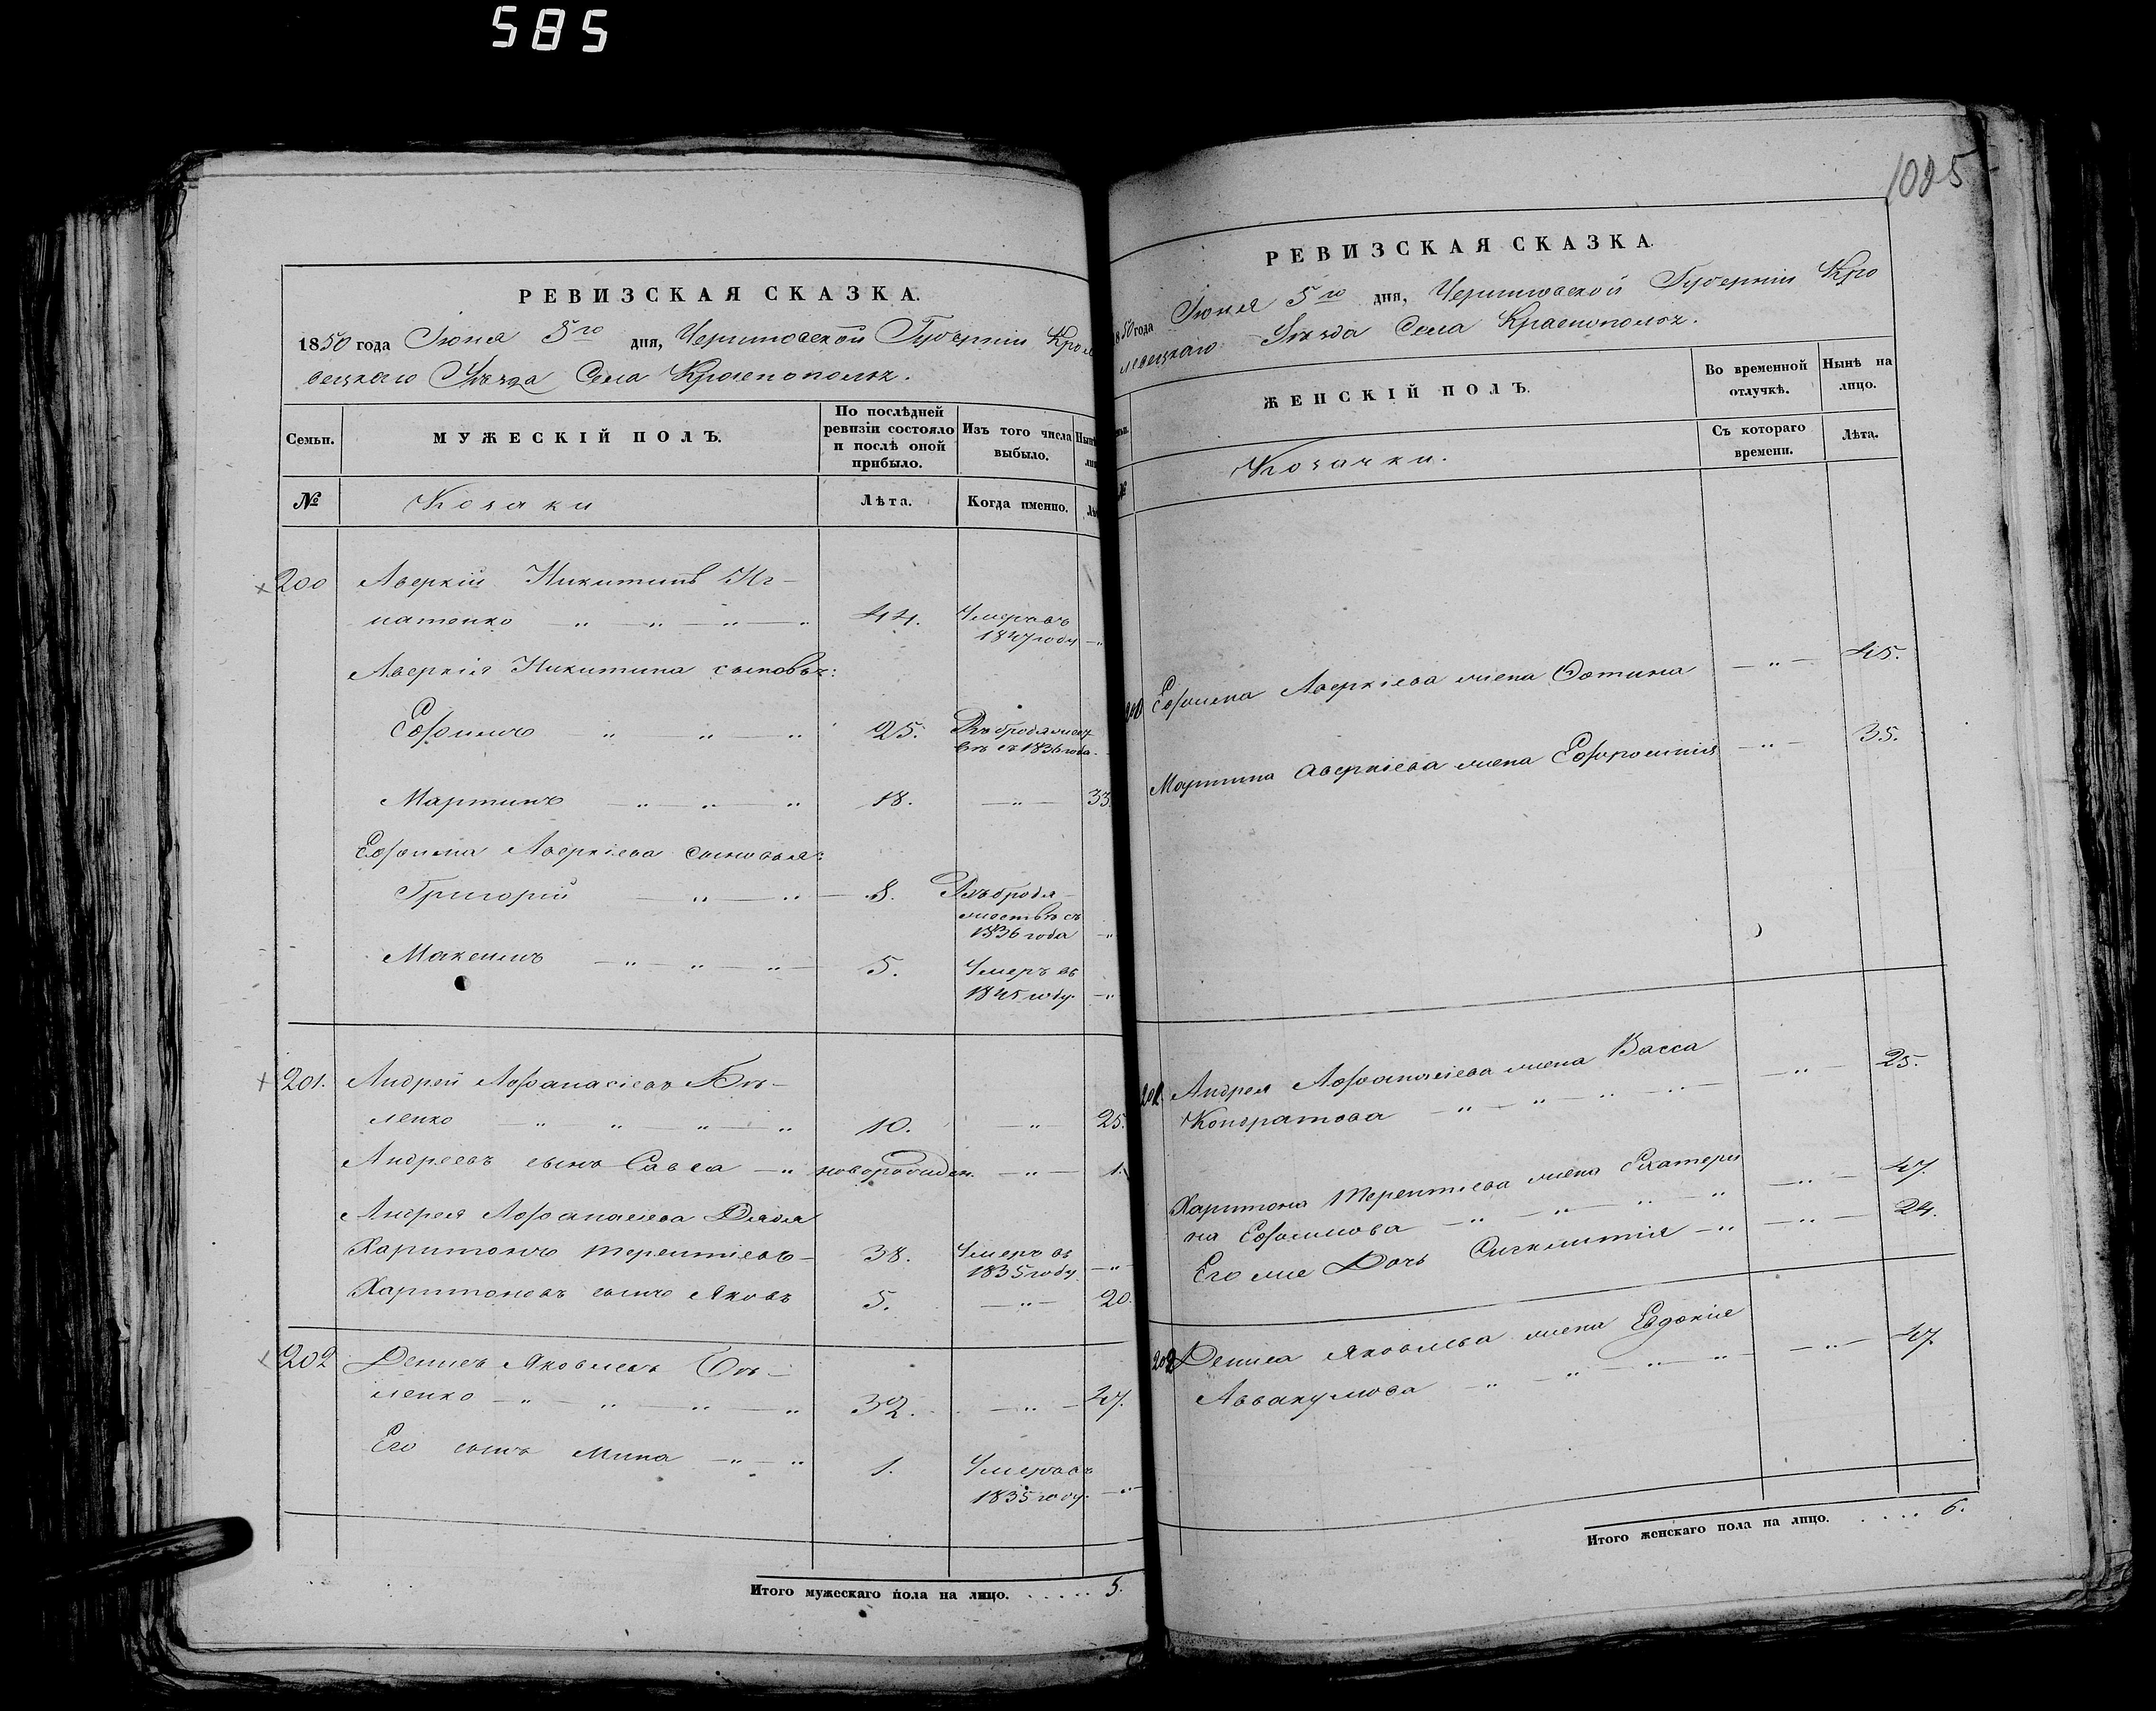 585
РЕВИЗСКАЯ СКАЗКА.
1850 года Іюня 5го дня, Черниговской Губерніи Кроле
вецкаго Уѣзда Села Краснополья.
Семьи.
МУЖЕСКІЙ ПОЛЪ.
По послѣдней
ревизіи состояло
и послѣ оной
прибыло.
Изъ того числа
выбыло.
Нынѣ
№
Козаки
Лѣта.
Когда именно.
200 Аверкій Никитинъ Иг-
натенко — „ — „ — „ — „ 44. Умеръ въ
1847 году — „
Аверкія Никитина сыновья:
Ефимъ „ „ „ 25. Въ бродяжест
въ съ 1836 года.
Мартинъ — „ „ „ 18. — „ — 33.
Ефима Аверкіева сыновья:
Григорій — „ — „ — 8. Въ бродя-
жествѣ съ
1836 года — „
Максимъ — „ — „ — „ — 5. Умеръ въ
1845 году. — „
201. Андрей Афанасіевъ Бѣ-
ленко „ — „ — „ — „ 10. — „ 25.
Андреевъ сынъ Савва — „ новорожден. — „ — 1.
Андрея Афанасіева Дядя
Харитонъ Терентіевъ — 38. Умеръ въ
1835 году — „
Харитоновъ сынъ Яковъ 5. — „ — 20.
202 Денисъ Яковлевъ Бѣ-
ленко — „ — „ — „ — „ 32. — „ — 47.
Его сынъ Мина — „ — „ 1. Умеръ въ
1835 году. — „
Итого мужескаго пола на лицо. . . . . . 5.
1025
РЕВИЗСКАЯ СКАЗКА.
1850 года Іюня 5го дня, Черниговской Губерніи Кро
левецкаго Уѣзда Села Краснополья.
ЖЕНСКІЙ ПОЛЪ.
Во временной
отлучкѣ.
Нынѣ на
лицо.
№
Козачки.
Съ котораго
времени.
Лѣта.
200 Ефима Аверкіева жена Фотина — „ — 45.
Мартина Аверкіева жена Ефросинія — „ — 35.
201 Андрея Афанасіева жена Васса
Кондратова — „ — „ — „ — „ — — „ — 25.
Харитона Терентіева жена Екатери
на Ефимова — „ — „ — „ — „ — „ — 47.
Его же Дочь Синклитія — „ — „ — 24.
202 Дениса Яковлева жена Евдокія
Аввакумова — „ — „ — „ — „ — „ — 47.
Итого женскаго пола на лицо. . . . . 6.